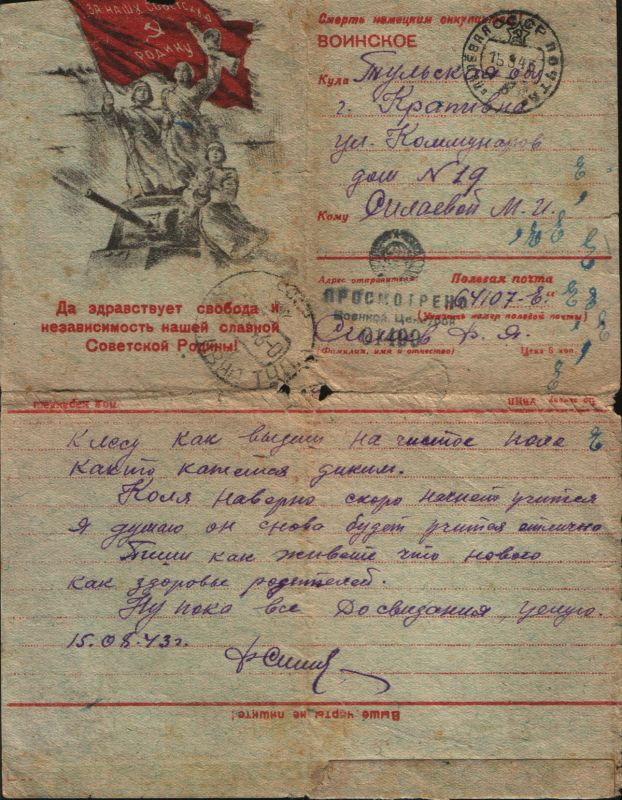 ЗА НАШУ СОВЕТСКУЮ
РОДИНУ
Да здравствует свобода и
независимость нашей славной
Советской Родины!
Смерть немецким
ВОИНСКОЕ
Куда Тульская обл
г. Крапивна
ул. Коммунаров
дом N 19
Кому Силаевой М. И.
Адрес отправителя: Полевая почта
64107-Е"
ПРОСМОТРЕНО
Военной Цензурой
(Указать номер полевой почты)
01400
Ф. Я.
(Фамилия, имя и отчество) Цена 5 коп.
К лесу как выдеш на чистое поле
как то кажется диким.
Коля наверно скоро начнет учится
Я думаю он снова будет учится отлично
Пиши как живете что нового
как здоровье родителей.
Ну пока все До свидания, целую.
15.08.43 г.
Выше черты не пишите!